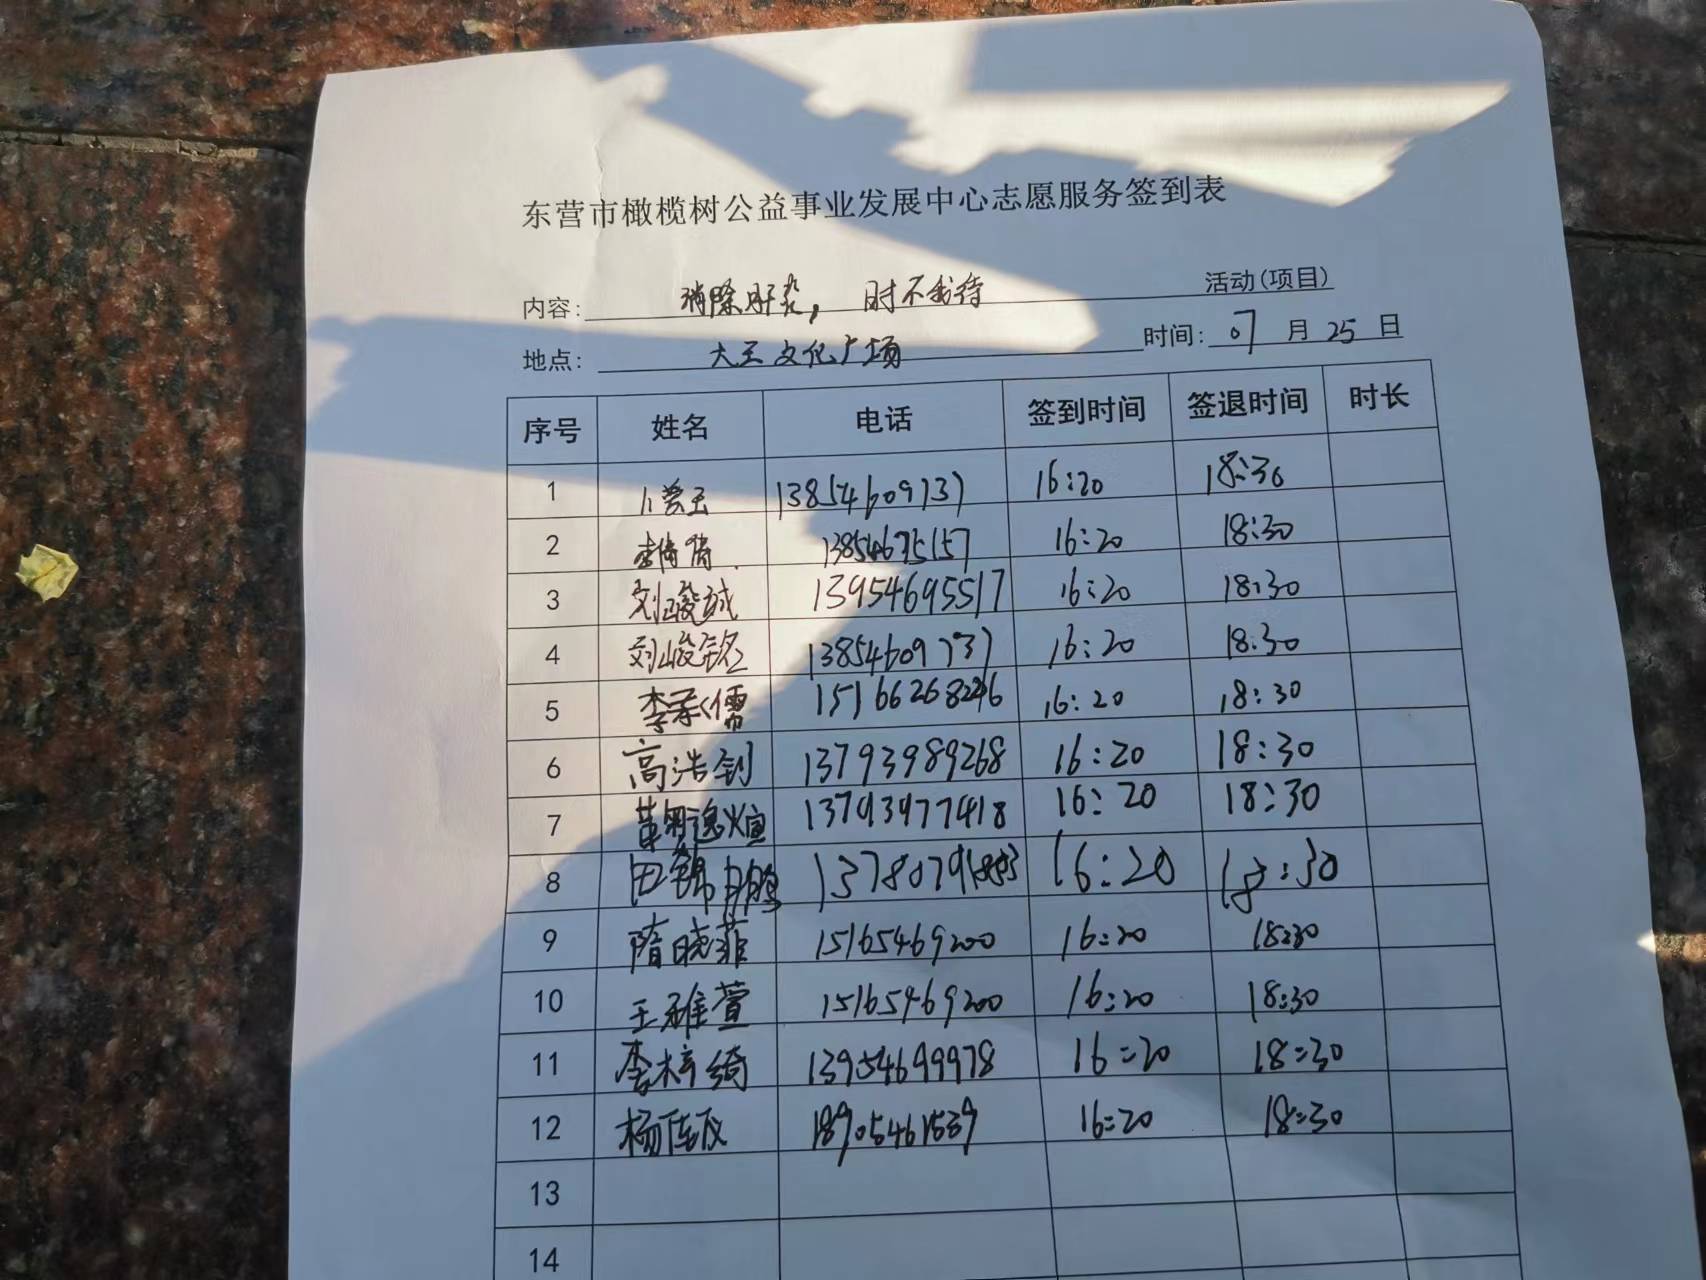 东营市橄榄树公益事业发展中心志愿服务签到表
内容: 消除肝炎，时不我待 活动(项目)
地点: 大王文化广场 时间: 07月25日
序号 姓名 电话 签到时间 签退时间 时长
1 13854609737 16:20 18:30
2 13854675157 16:20 18:30
3 刘峻诚 13954695517 16:20 18:30
4 刘峻铭 13854609737 16:20 18:30
5 李 儒 16:20 18:30
6 高浩钊 13793989268 16:20 18:30
7 13793977418 16:20 18:30
8 田锦鹏 16:20 18:30
9 隋晓菲 15165469200 16:20 18:30
10 王雅萱 15165469200 16:20 18:30
11 李梓绮 13954699978 16:20 18:30
12 杨 18905461539 16:20 18:30
13
14